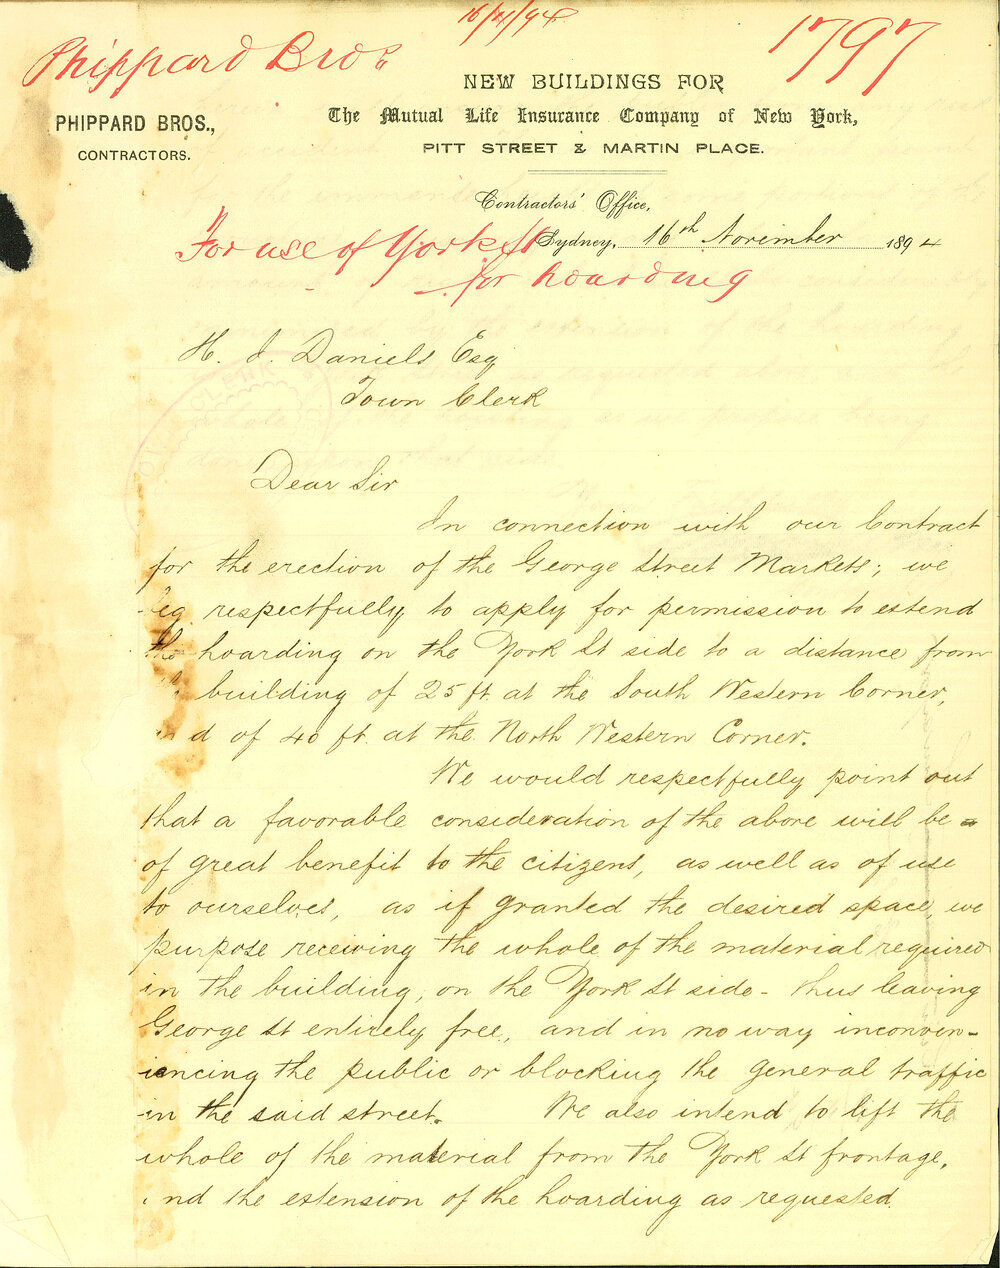 16/11/94
Phippard Bros
1797
NEW BUILDINGS FOR
PHIPPARD BROS.,
The Mutual Life Insurance Company of New York,
CONTRACTORS.
PITT STREET & MARTIN PLACE.
Contractors' Office,
Sydney, 16th November 1894
For use of York St
for hoarding
H. J. Daniels Esq
Town Clerk
Dear Sir
In connection with our Contract
for the erection of the George Street Markets; we
beg respectfully to apply for permission to extend
the hoarding on the York St side to a distance from
building of 25 ft. at the South Western Corner,
and of 40 ft. at the North Western Corner.
We would respectfully point out
that a favorable consideration of the above will be
of great benefit to the citizens, as well as of use
to ourselves, as if granted the desired space, we
purpose receiving the whole of the material required
in the building, on the York St side - thus leaving
George St entirely free, and in no way inconven-
iencing the public or blocking the general traffic
in the said street. We also intend to lift the
whole of the material from the York St frontage,
and the extension of the hoarding as requested